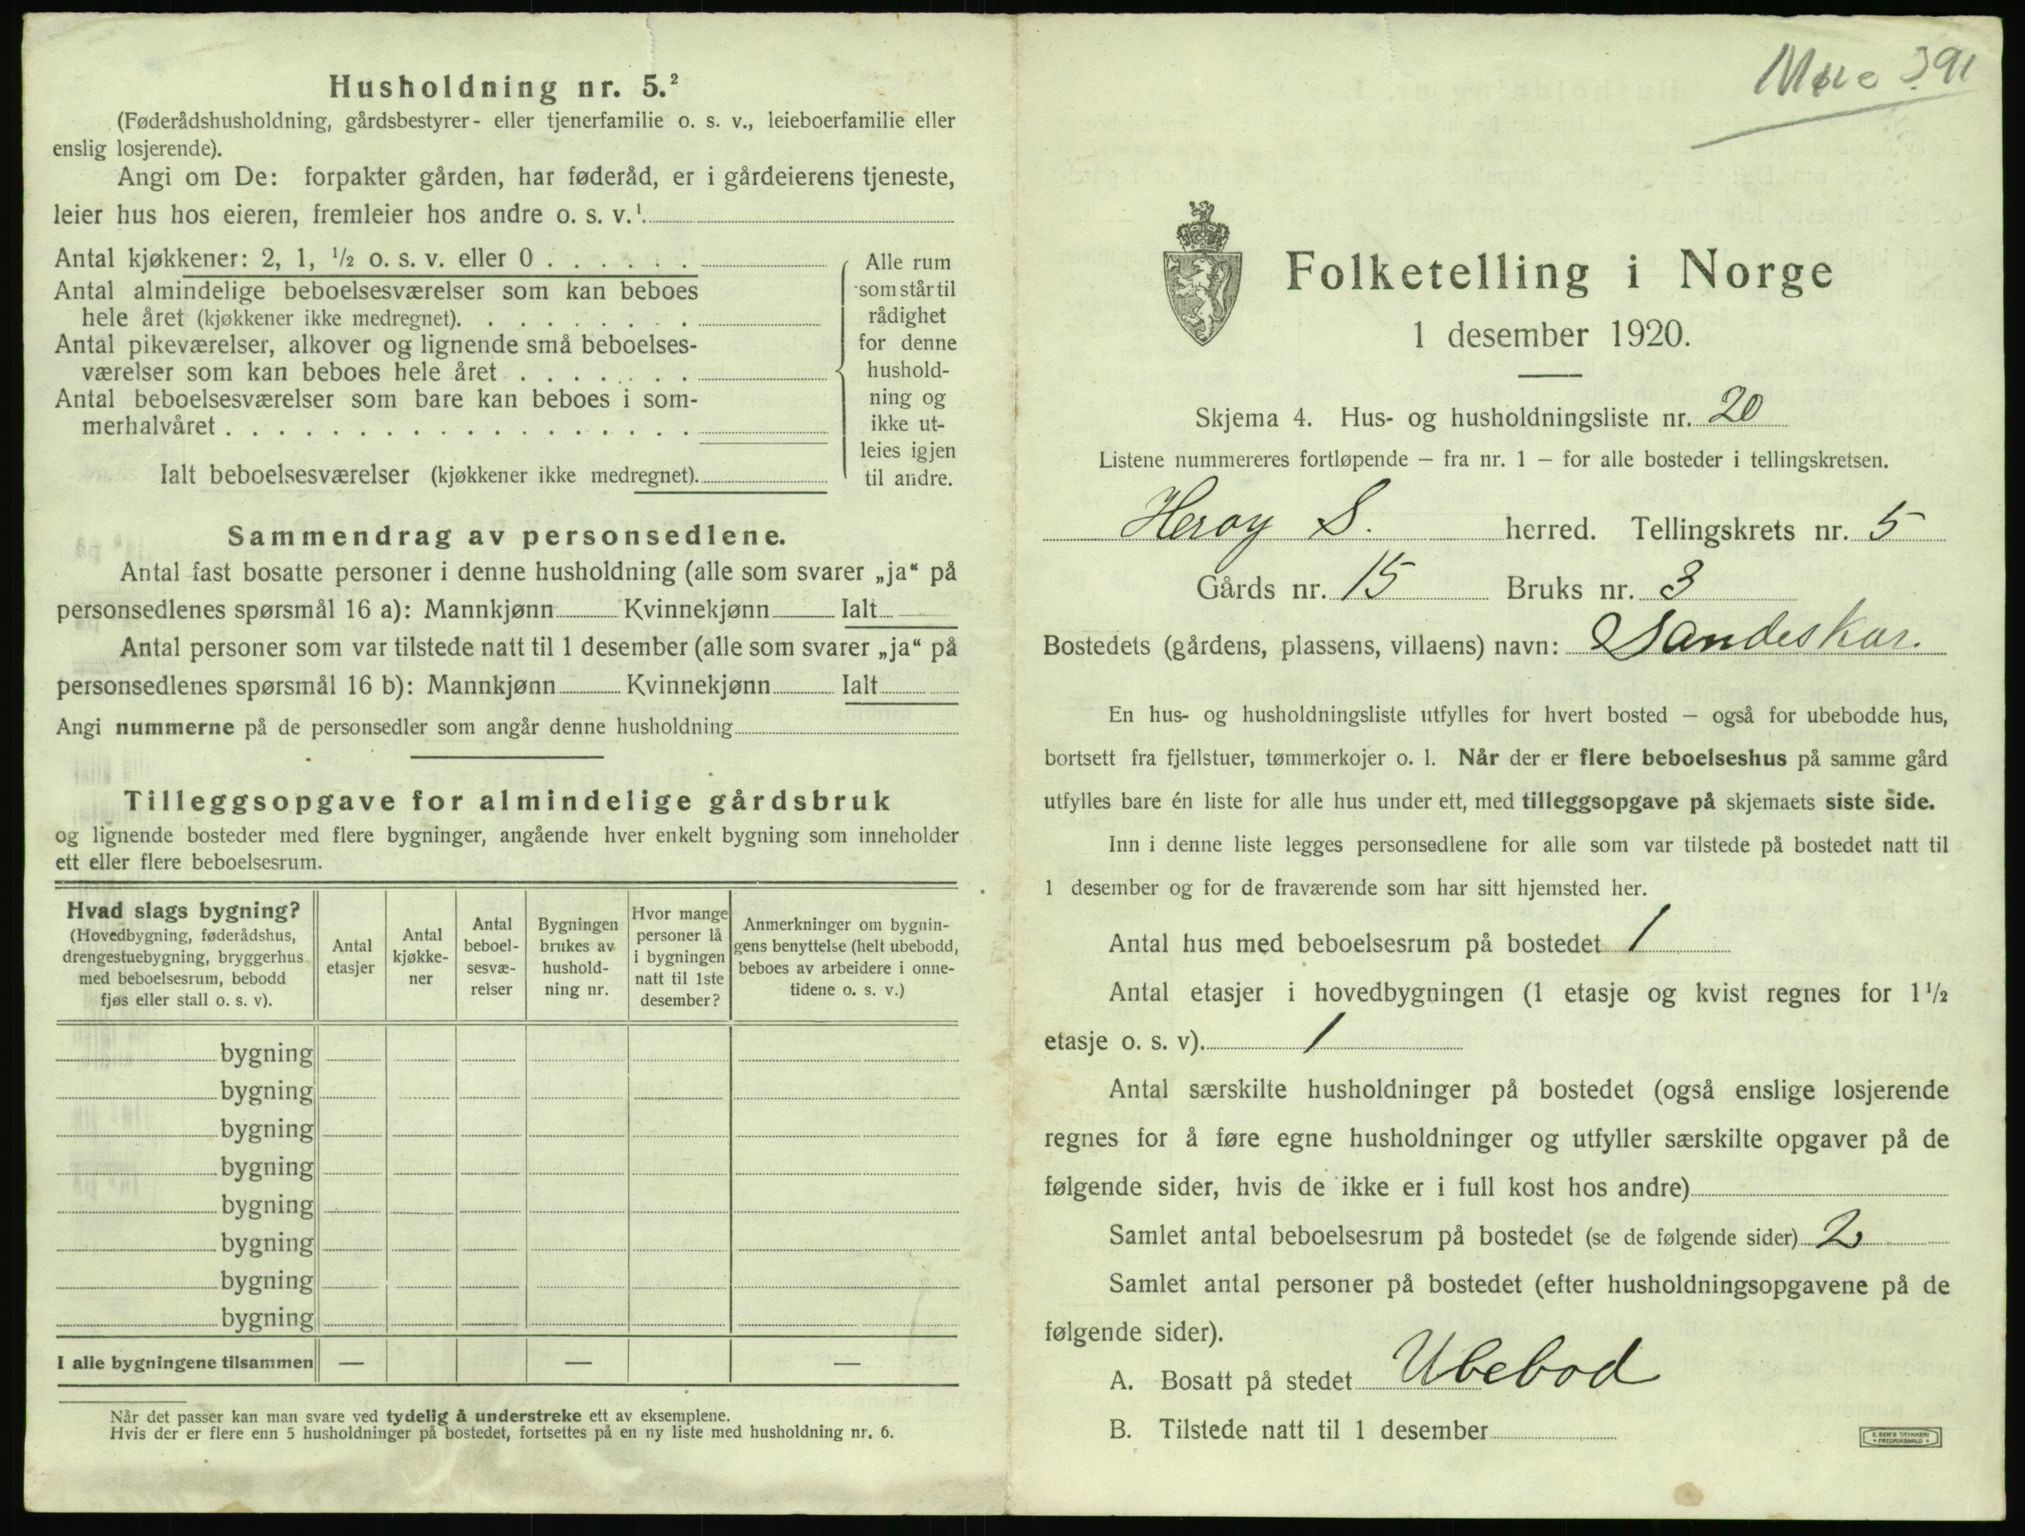 Husholdning nr. 5.²
(Føderådshusholdning, gårdsbestyrer- eller tjenerfamilie o. s. v., leieboerfamilie eller
enslig losjerende).
Angi om De: forpakter gården, har føderåd, er i gårdeierens tjeneste,
leier hus hos eieren, fremleier hos andre o. s. v.¹
Antal kjøkkener: 2, 1, ½ o. s. v. eller 0 . . . . . .
Antal almindelige beboelsesværelser som kan beboes
hele året (kjøkkener ikke medregnet). . . . . . . . .
Antal pikeværelser, alkover og lignende små beboelses-
værelser som kan beboes hele året . . . . . . .
Antal beboelsesværelser som bare kan beboes i som-
merhalvåret . . . . . . . . . . . . . . . . . .
Ialt beboelsesværelser (kjøkkener ikke medregnet).
Alle rum
som står til
rådighet
for denne
hushold-
ning og
ikke ut-
leies igjen
til andre.
Sammendrag av personsedlene.
Antal fast bosatte personer i denne husholdning (alle som svarer „ja“ på
personsedlenes spørsmål 16 a): Mannkjønn Kvinnekjønn Ialt
Antal personer som var tilstede natt til 1 desember (alle som svarer „ja“ på
personsedlenes spørsmål 16 b): Mannkjønn Kvinnekjønn Ialt
Angi nummerne på de personsedler som angår denne husholdning
Tilleggsopgave for almindelige gårdsbruk
og lignende bosteder med flere bygninger, angående hver enkelt bygning som inneholder
ett eller flere beboelsesrum.
Hvad slags bygning?
(Hovedbygning, føderådshus,
drengestuebygning, bryggerhus
med beboelsesrum, bebodd
fjøs eller stall o. s. v).
Antal
etasjer
Antal
kjøkke-
ner
Antal
beboel-
sesvæ-
relser
Bygningen
brukes av
hushold-
ning nr.
Hvor mange
personer lå
i bygningen
natt til 1ste
desember?
Anmerkninger om bygnin-
gens benyttelse (helt ubebodd,
beboes av arbeidere i onne-
tidene o. s. v.)
bygning
bygning
bygning
bygning
bygning
bygning
bygning
bygning
I alle bygningene tilsammen — — —
Når det passer kan man svare ved tydelig å understreke ett av eksemplene.
Hvis der er flere enn 5 husholdninger på bostedet, fortsettes på en ny liste med husholdning nr. 6.
Møre 391
Folketelling i Norge
1 desember 1920.
Skjema 4. Hus- og husholdningsliste nr. 20
Listene nummereres fortløpende – fra nr. 1 – for alle bosteder i tellingskretsen.
Herøy S. herred. Tellingskrets nr. 5
Gårds nr. 15 Bruks nr. 3
Bostedets (gårdens, plassens, villaens) navn: Sandeskar.
En hus- og husholdningsliste utfylles for hvert bosted – også for ubebodde hus,
bortsett fra fjellstuer, tømmerkojer o. l. Når der er flere beboelseshus på samme gård
utfylles bare én liste for alle hus under ett, med tilleggsopgave på skjemaets siste side.
Inn i denne liste legges personsedlene for alle som var tilstede på bostedet natt til
1 desember og for de fraværende som har sitt hjemsted her.
Antal hus med beboelsesrum på bostedet 1
Antal etasjer i hovedbygningen (1 etasje og kvist regnes for 1½
etasje o. s. v). 1
Antal særskilte husholdninger på bostedet (også enslige losjerende
regnes for å føre egne husholdninger og utfyller særskilte opgaver på de
følgende sider, hvis de ikke er i full kost hos andre)
Samlet antal beboelsesrum på bostedet (se de følgende sider) 2
Samlet antal personer på bostedet (efter husholdningsopgavene på de
følgende sider).
A. Bosatt på stedet Ubebod
B. Tilstede natt til 1 desember